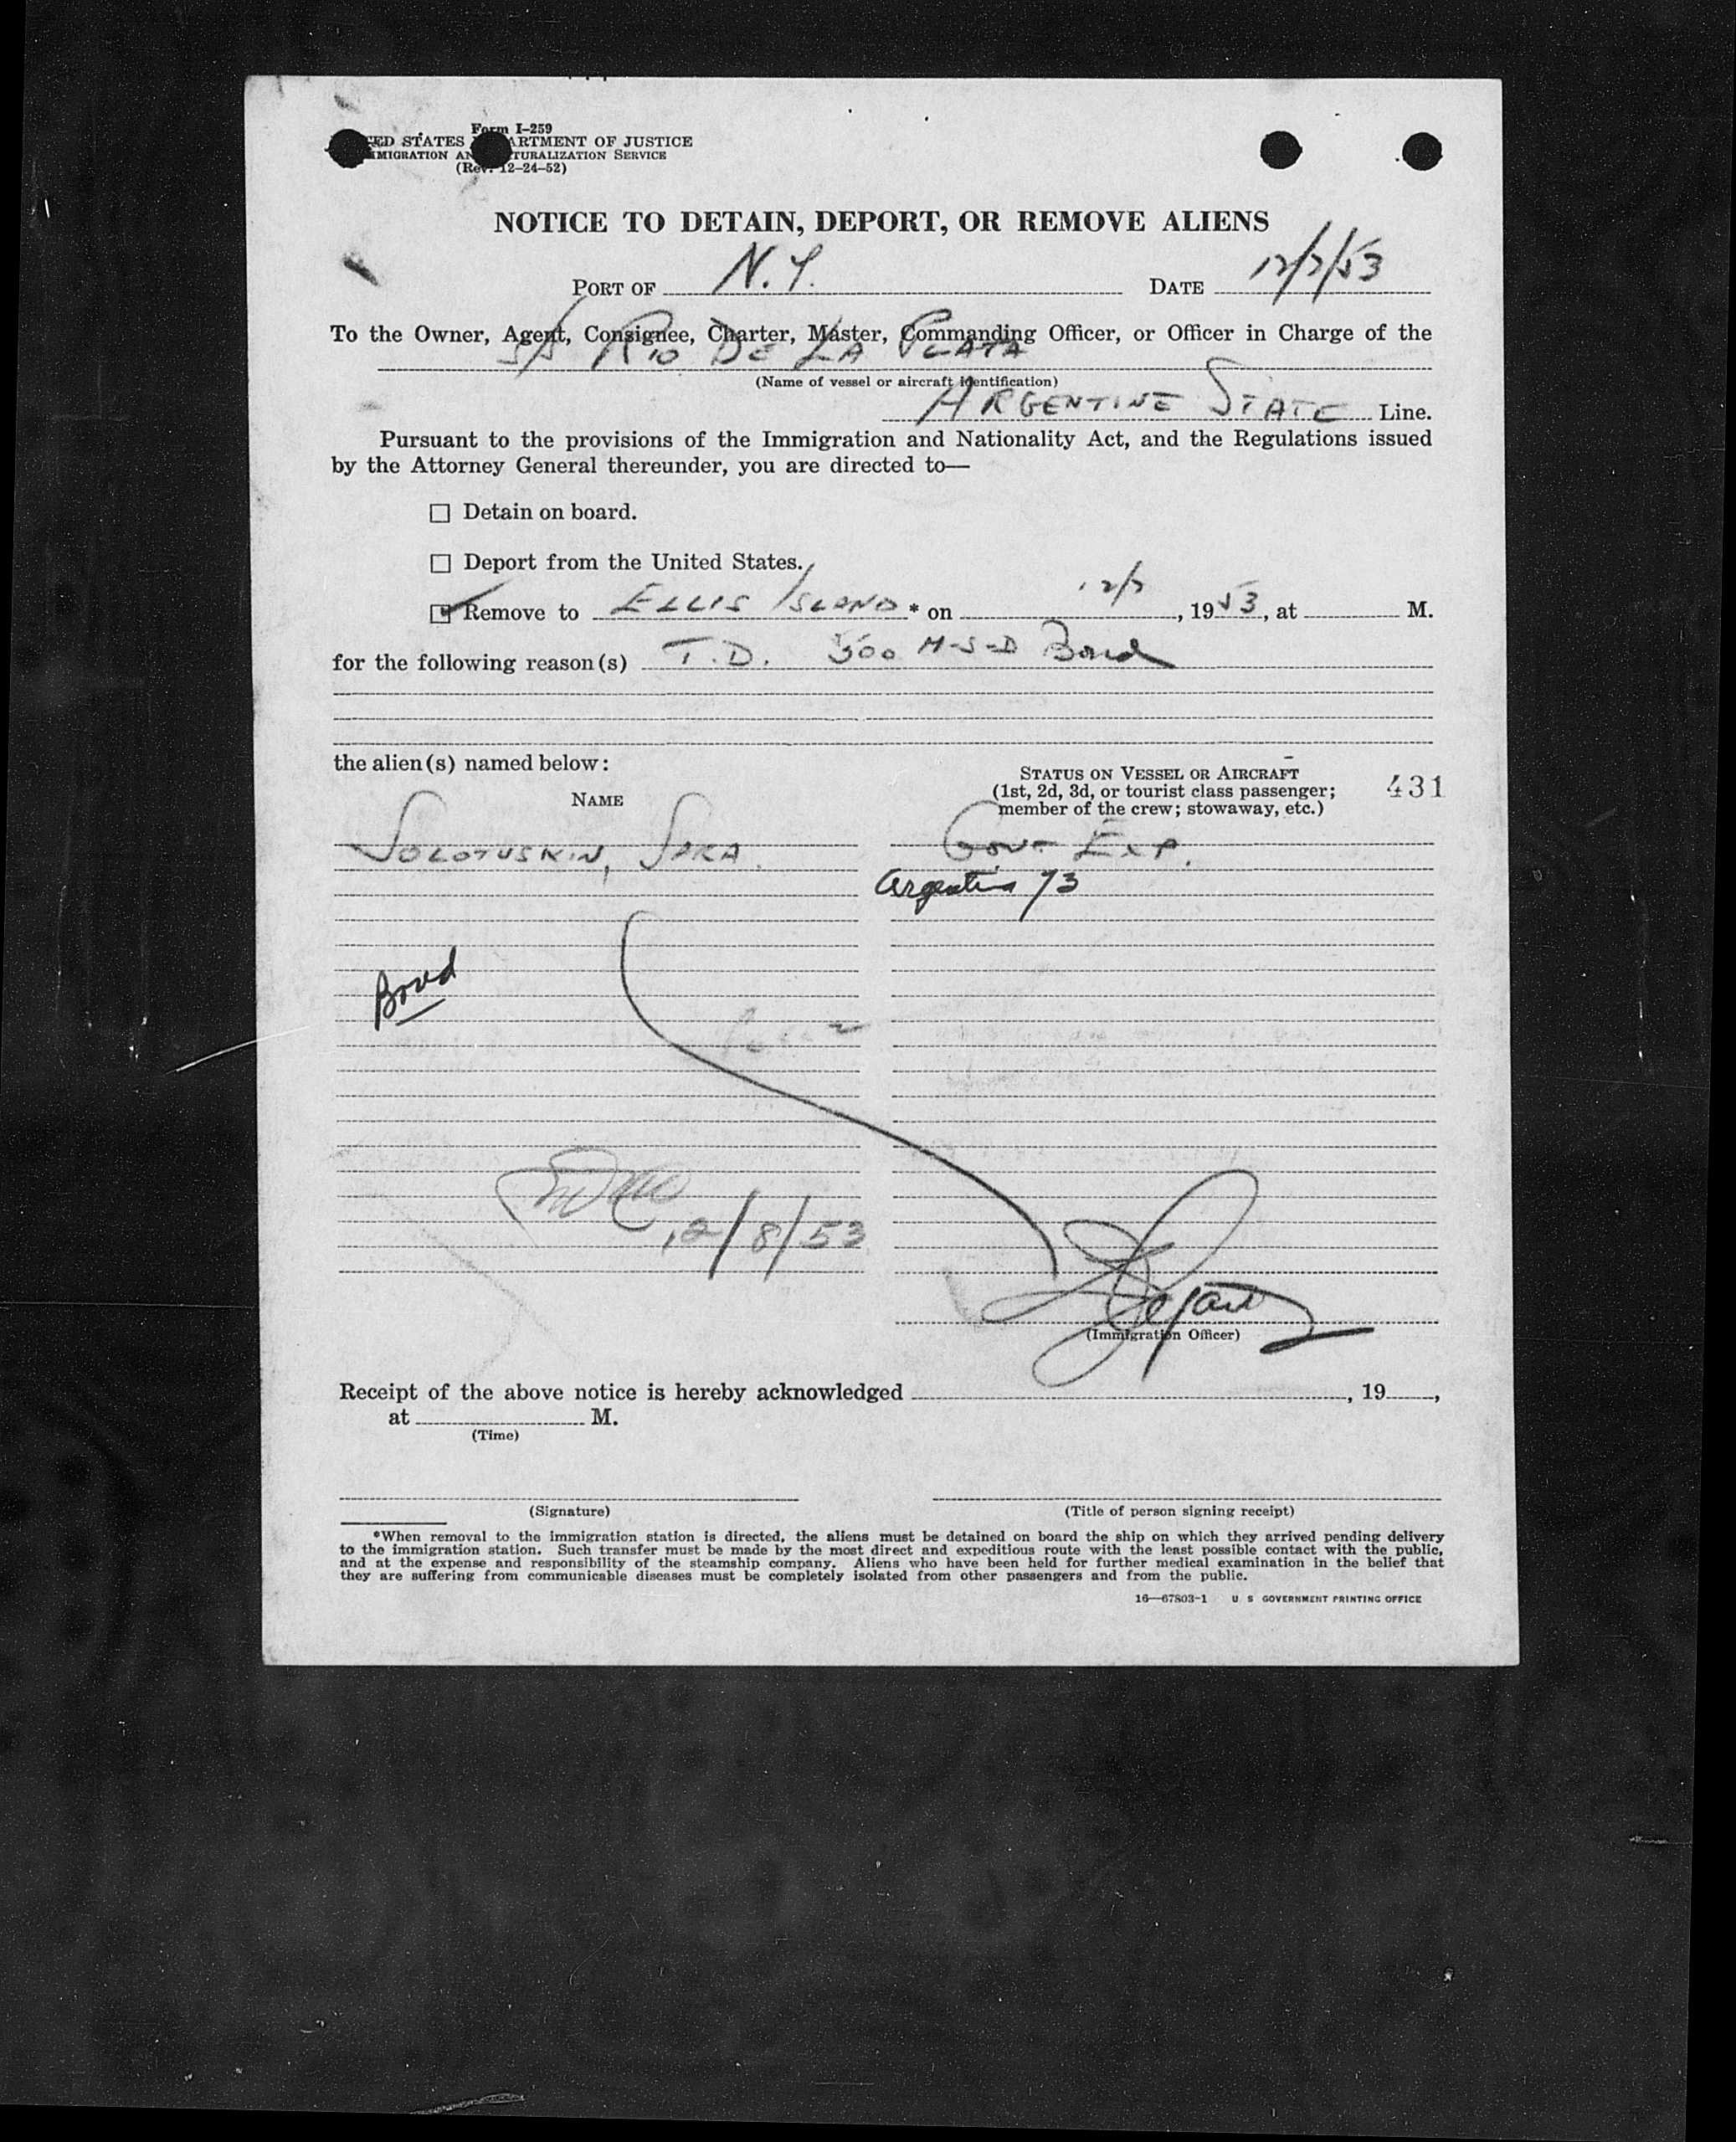 Form I-259
ED STATES ARTMENT OF JUSTICE
MIGRATION AN TURALIZATION SERVICE
(Rev. 12-24-52)
NOTICE TO DETAIN, DEPORT, OR REMOVE ALIENS
PORT OF N.Y. DATE 12/7/53
To the Owner, Agent, Consignee, Charter, Master, Commanding Officer, or Officer in Charge of the
S/S RIO DE LA PLATA
(Name of vessel or aircraft identification)
ARGENTINE STATE Line.
Pursuant to the provisions of the Immigration and Nationality Act, and the Regulations issued
by the Attorney General thereunder, you are directed to—
☐ Detain on board.
☐ Deport from the United States.
☑ Remove to ELLIS ISLAND * on 12/7, 1953, at M.
for the following reason(s) T.D. 500 M-S-D Bond
the alien(s) named below:
NAME
STATUS ON VESSEL OR AIRCRAFT
(1st, 2d, 3d, or tourist class passenger;
member of the crew; stowaway, etc.)
431
SOLOTUSKIN, SARA. GOVT EXP.
Argentina 73
Bond
12/8/53
(Immigration Officer)
Receipt of the above notice is hereby acknowledged , 19 ,
at M.
(Time)
(Signature) (Title of person signing receipt)
*When removal to the immigration station is directed, the aliens must be detained on board the ship on which they arrived pending delivery
to the immigration station. Such transfer must be made by the most direct and expeditious route with the least possible contact with the public,
and at the expense and responsibility of the steamship company. Aliens who have been held for further medical examination in the belief that
they are suffering from communicable diseases must be completely isolated from other passengers and from the public.
16—67803-1 U S GOVERNMENT PRINTING OFFICE